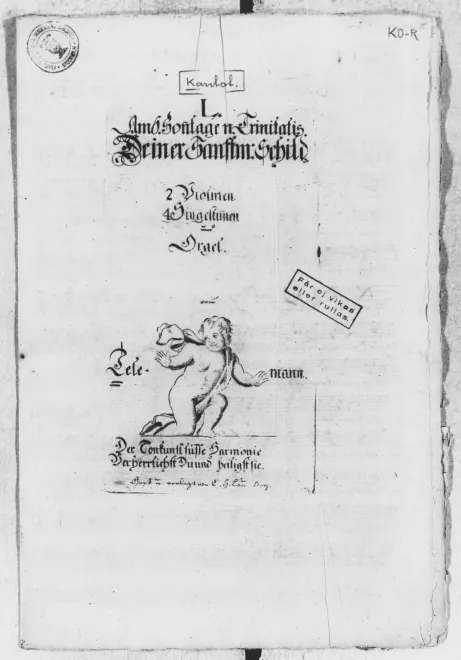 KO-R
Kantat.
L.
Am 6. Sontage n. Trinitatis.
Deiner Sanftm. Schild
2 Violinen
4 Singestimen
Orgel.
Får ej vikas
eller rullas.
von
Tele- mann.
Der Tonkunst süsse Harmonie
Verherrlichst Du und heiligst sie.